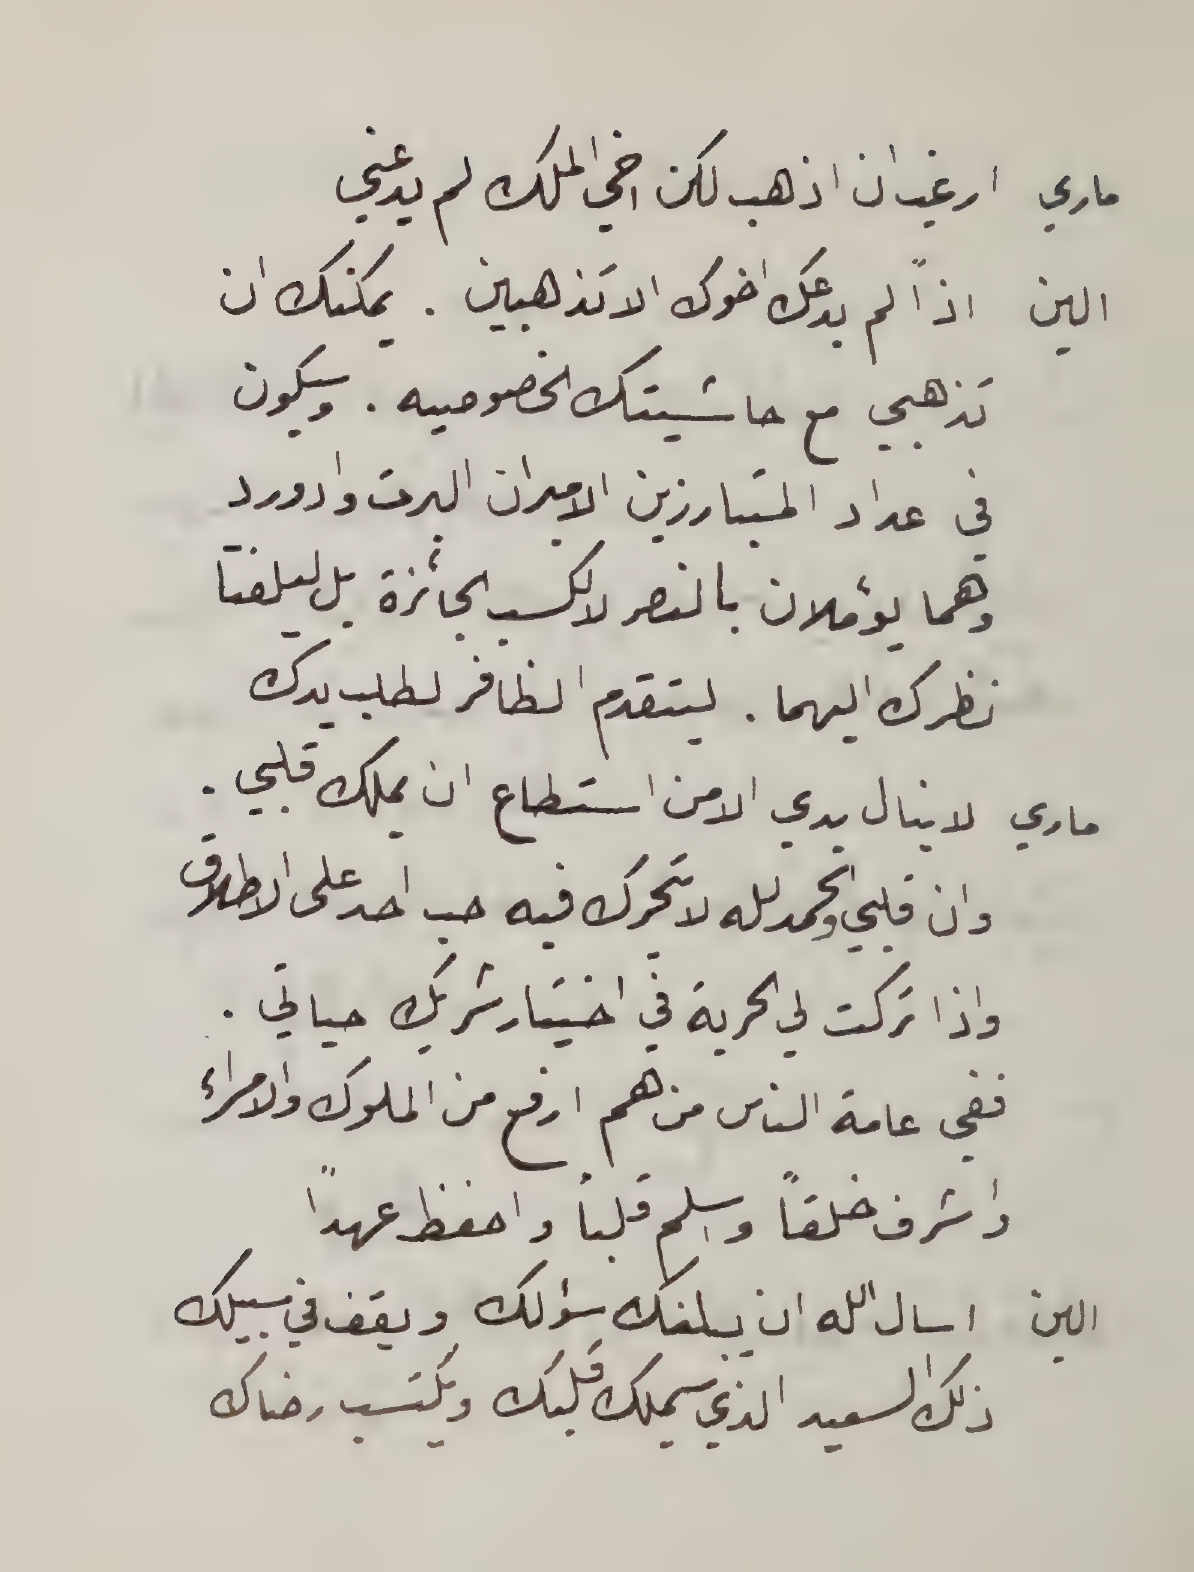 ماري ارغب ان اذهب لكن اخي الملك لم يدعني
الين اذاً لم يدعك اخوك الا تذهبين . يمكنك ان
تذهبي مع حاشيتك الخصوصيه . وسيكون
في عداد المتبارزين الاميران البرت وادورد
وهما يؤملان بالنصر لا لكسب الجائزة بل ليلفتا
نظرك اليهما . ليتقدم الظافر لطلب يدك
ماري لا ينال يدي الا من استطاع ان يملك قلبي .
وان قلبي والحمد لله لا يتحرك فيه حب احد على الاطلاق
واذا تركت لي الحرية في اختيار شريك حياتي .
ففي عامة الناس من هم ارفع من الملوك والامراء
واشرف خلقاً واسلم قلباً واحفظ عهداً
الين اسال الله ان يبلغك سؤلك ويقف في سبيلك
ذلك السعيد الذي سيملك قلبك ويكتسب رضاك